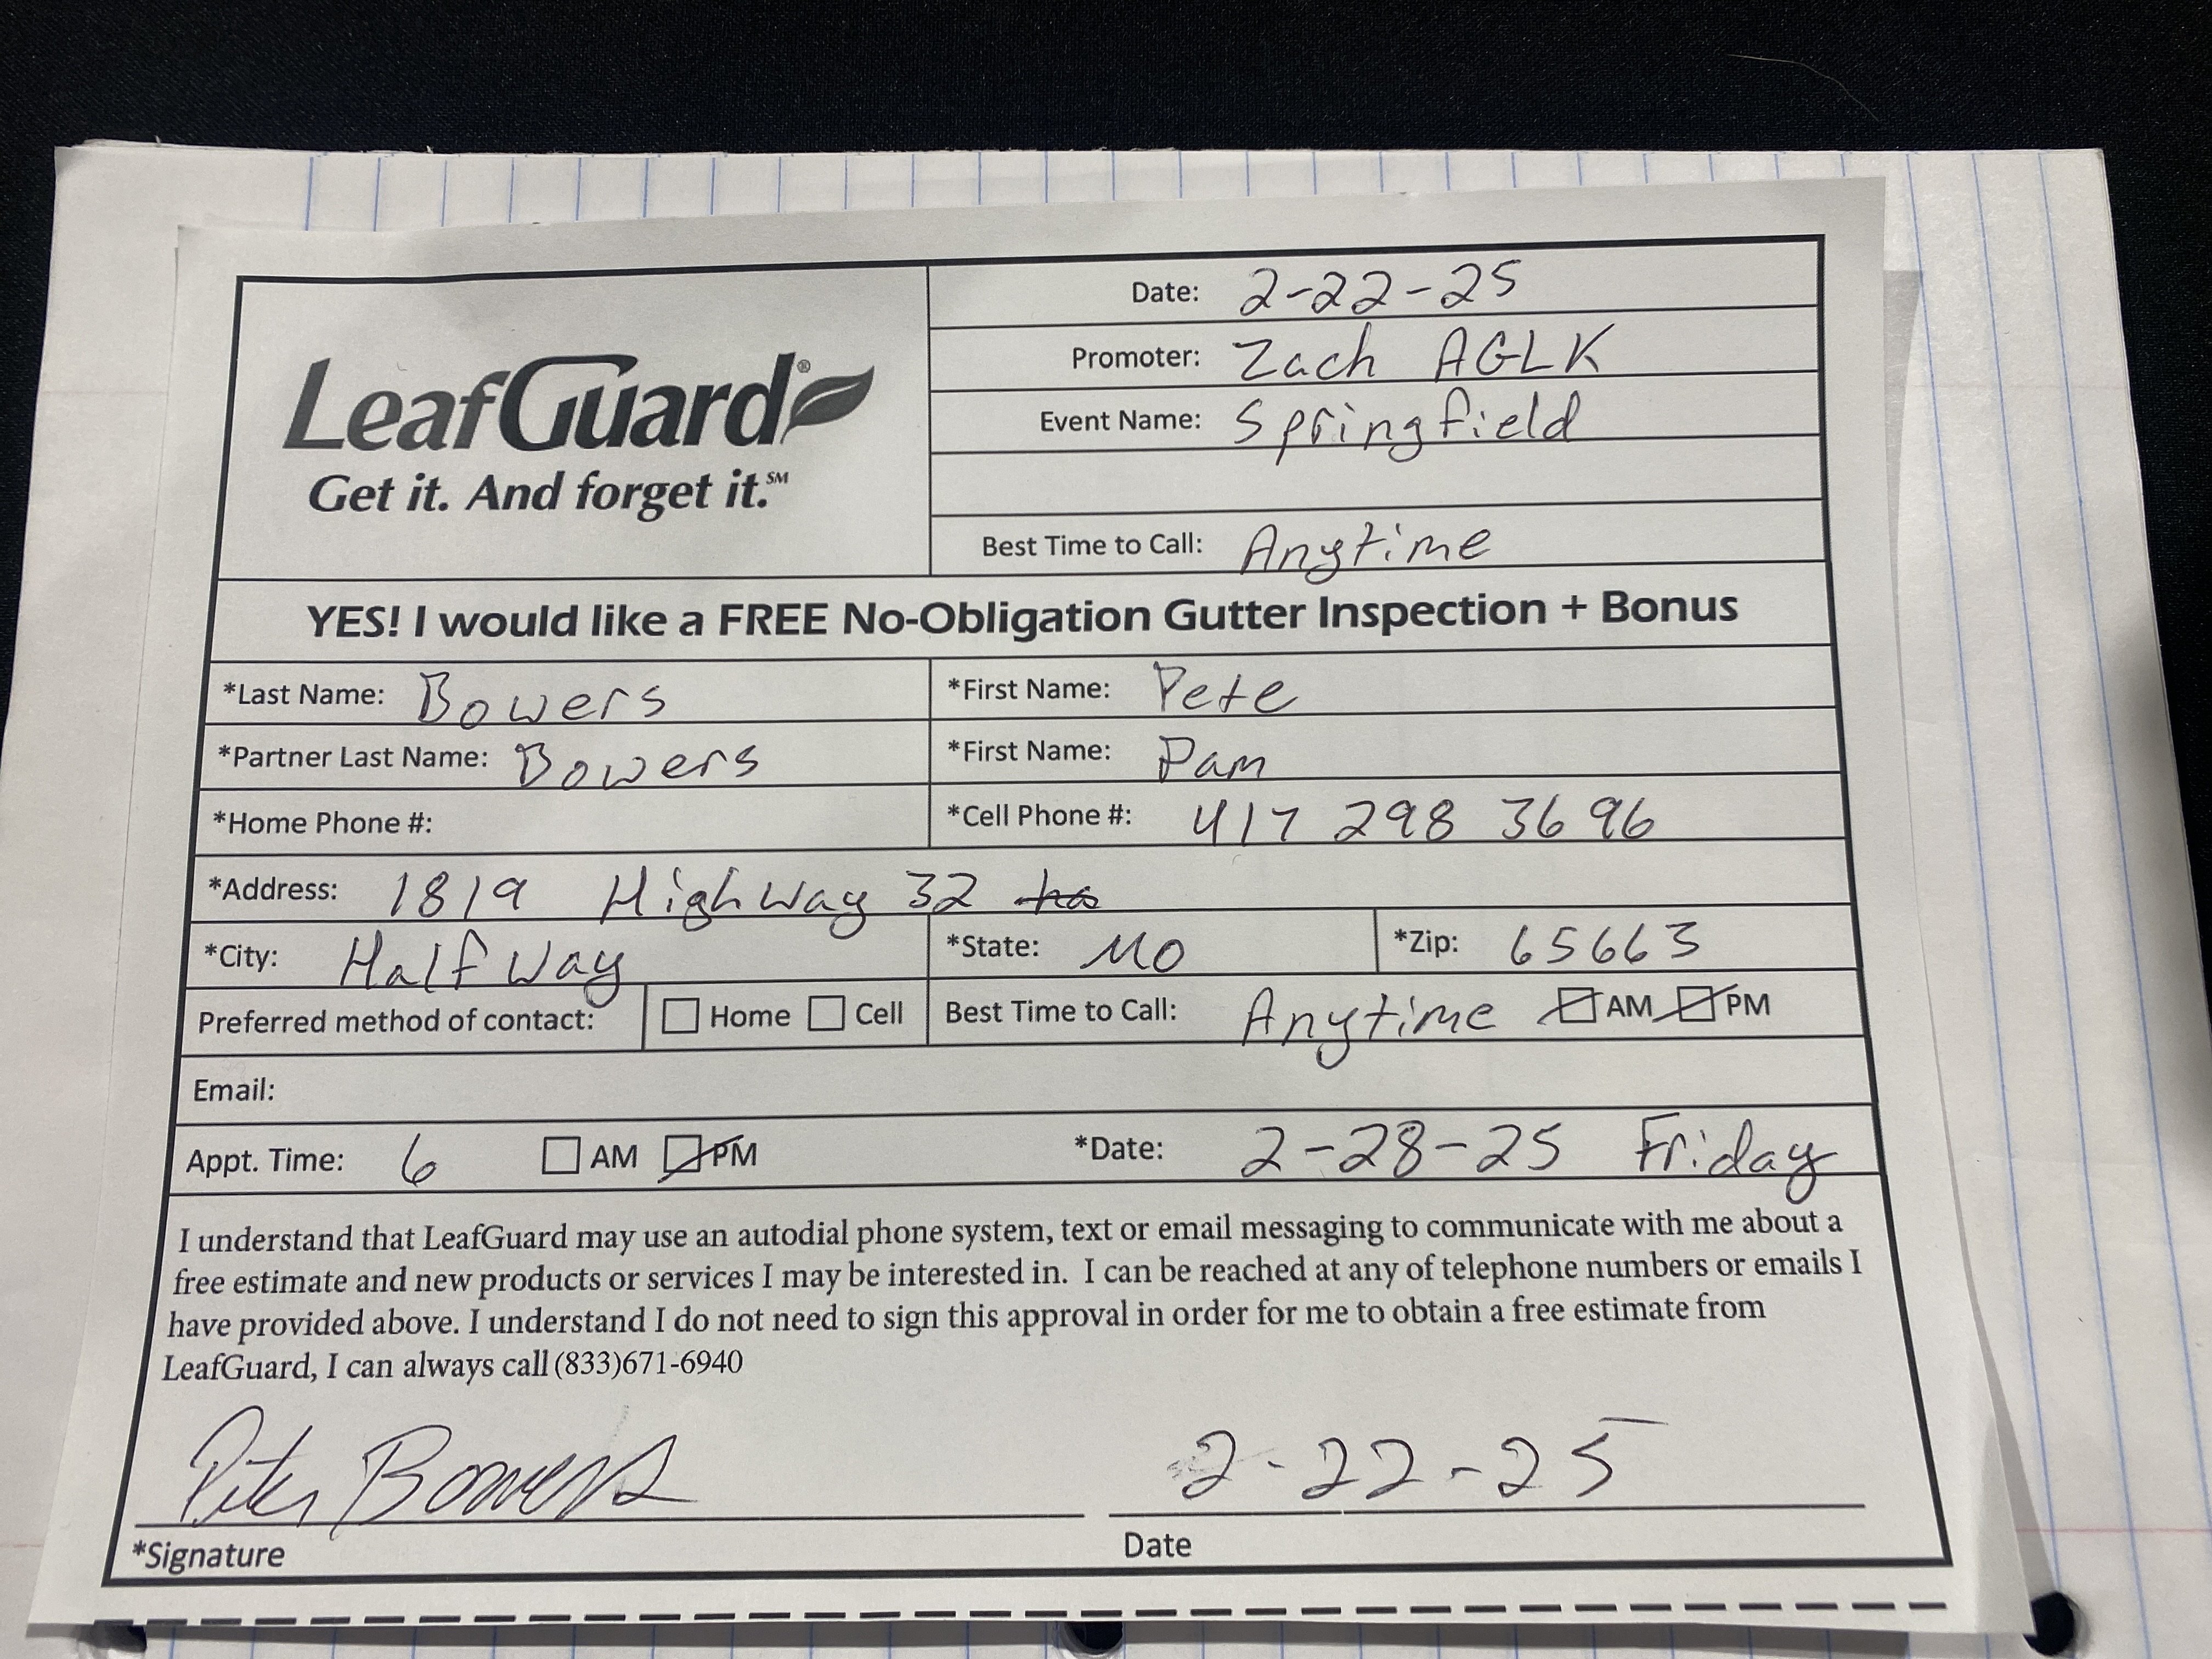 LeafGuard®
Get it. And forget it.℠
Date: 2-22-25
Promoter: Zach AGLK
Event Name: Springfield
Best Time to Call: Anytime
YES! I would like a FREE No-Obligation Gutter Inspection + Bonus
*Last Name: Bowers *First Name: Pete
*Partner Last Name: Bowers *First Name: Pam
*Home Phone #: *Cell Phone #: 417 298 3696
*Address: 1819 Highway 32
*City: Halfway *State: MO *Zip: 65663
Preferred method of contact: ☐ Home ☐ Cell Best Time to Call: Anytime ☑ AM ☑ PM
Email:
Appt. Time: 6 ☐ AM ☑ PM *Date: 2-28-25 Friday
I understand that LeafGuard may use an autodial phone system, text or email messaging to communicate with me about a
free estimate and new products or services I may be interested in. I can be reached at any of telephone numbers or emails I
have provided above. I understand I do not need to sign this approval in order for me to obtain a free estimate from
LeafGuard, I can always call (833)671-6940
Pete Bowers 2-22-25
*Signature Date